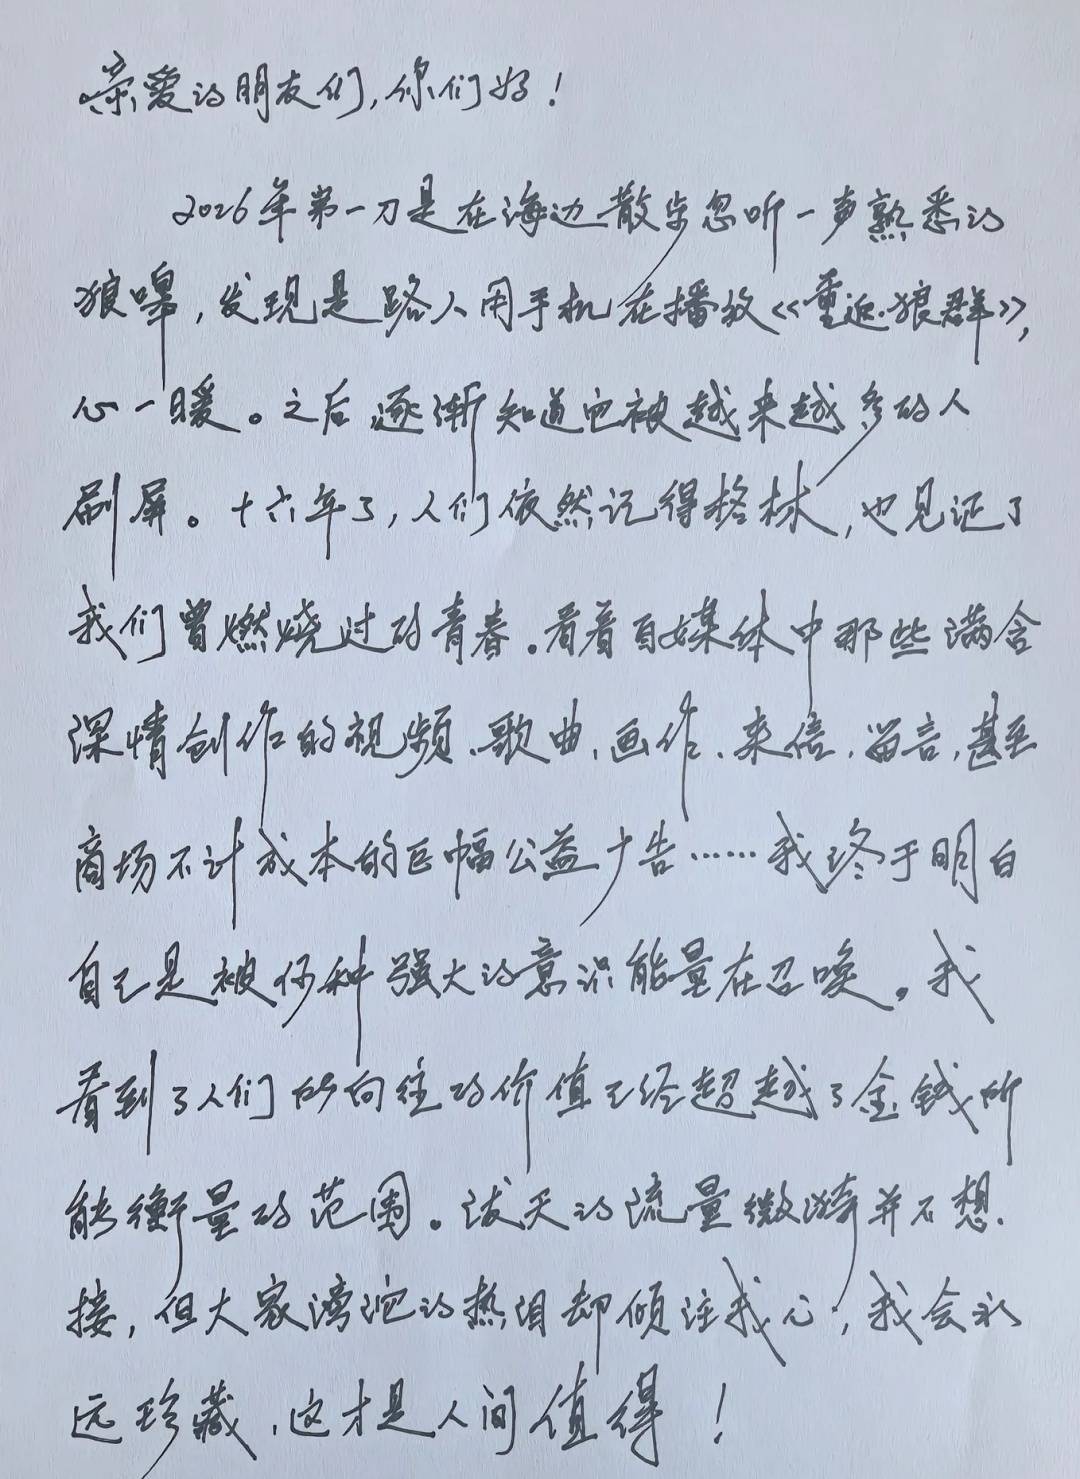 亲爱的朋友们,你们好!
2026年第一刀是在海边散步忽听一声熟悉的
狼嗥,发现是路人用手机在播放《重返·狼群》,
心一暖。之后逐渐知道它被越来越多的人
刷屏。十六年了,人们依然记得格林,也见证了
我们曾燃烧过的青春。看着自媒体中那些满含
深情创作的视频、歌曲、画作、来信、留言,甚至
商场不计成本的巨幅公益广告……我终于明白
自己是被何种强大的意识能量在召唤。我
看到了人们所向往的价值已经超越了金钱所
能衡量的范围。泼天的流量微漪并不想
接,但大家滂沱的热泪却倾注我心,我会永
远珍藏,这才是人间值得!